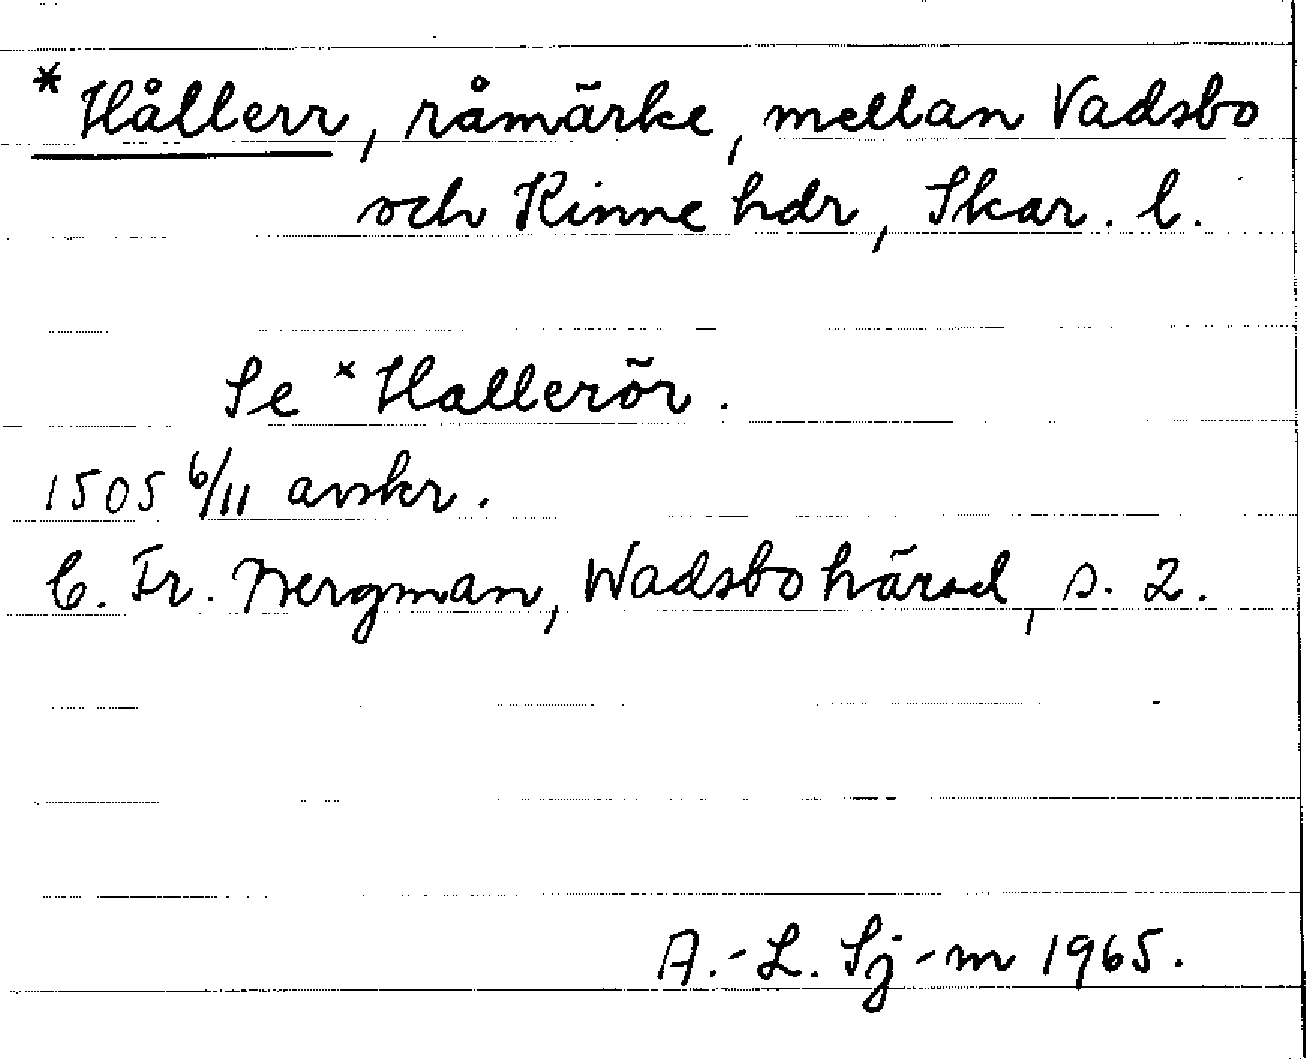 *Hållerr, råmärke, mellan Vadsbo
och Kinne hdr, Skar. l.
Se *Hallerör.
1505 6/11 avskr.
C. Fr. Wergman, Wadsbo härad, s. 2.
A.-L. Sj-m 1965.